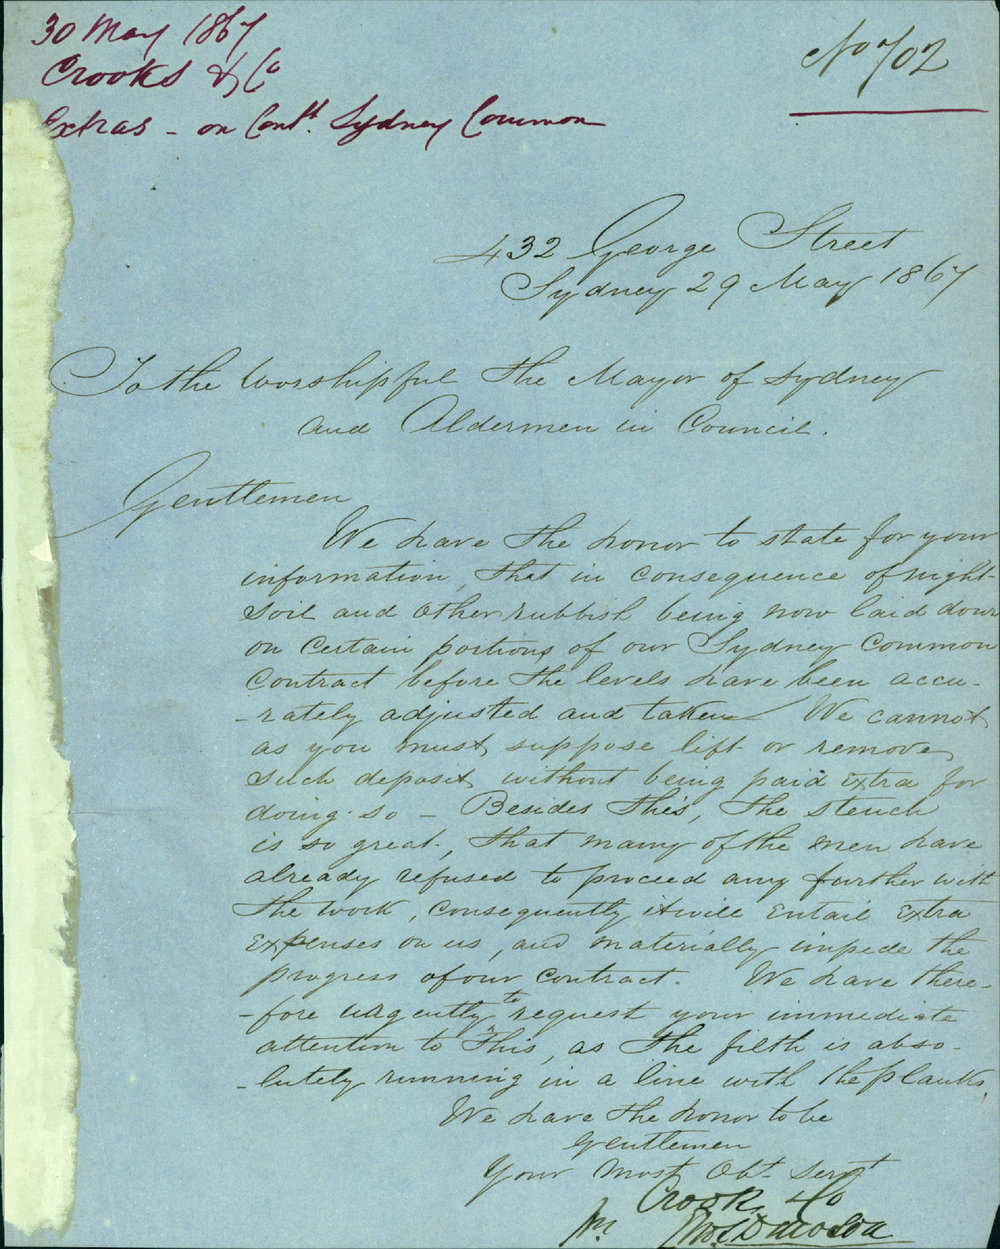 30 May 1867
Crooks & Co
Extras - on Cont. Sydney Common
No 702
432 George Street
Sydney 29 May 1867
To the Worshipful the Mayor of Sydney
and Aldermen in Council.
Gentlemen
We have the honor to state for your
information, that in consequence of night-
soil and other rubbish being now laid down
on certain portions of our Sydney Common
Contract before the levels have been accu-
-rately adjusted and taken We cannot
as you must suppose lift or remove
such deposit, without being paid extra for
doing so - Besides this, the stench
is so great, that many of the men have
already refused to proceed any further with
the work, consequently it will entail extra
expenses on us, and materially impede the
progress of our contract. We have there-
-fore urgently to request your immediate
attention to this, as the filth is abso-
-lutely running in a line with the planks.
We have the honor to be
Gentlemen
Your most Obt. Servt
Crook & Co